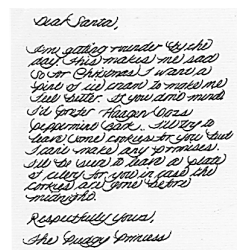 Dear Santa,
I'm getting rounder by the
day. This makes me sad
So for Christmas I want a
pint of ice cream to make me
feel better. If you don't mind
I'd prefer Haagen Dazs
Peppermint Bark. I'll try to
leave some cookies for you but
I can't make any promises.
I'll be sure to leave a plate
of celery for you in case the
cookies are gone before
midnight.
Respectfully yours,
The Pudgy Princess